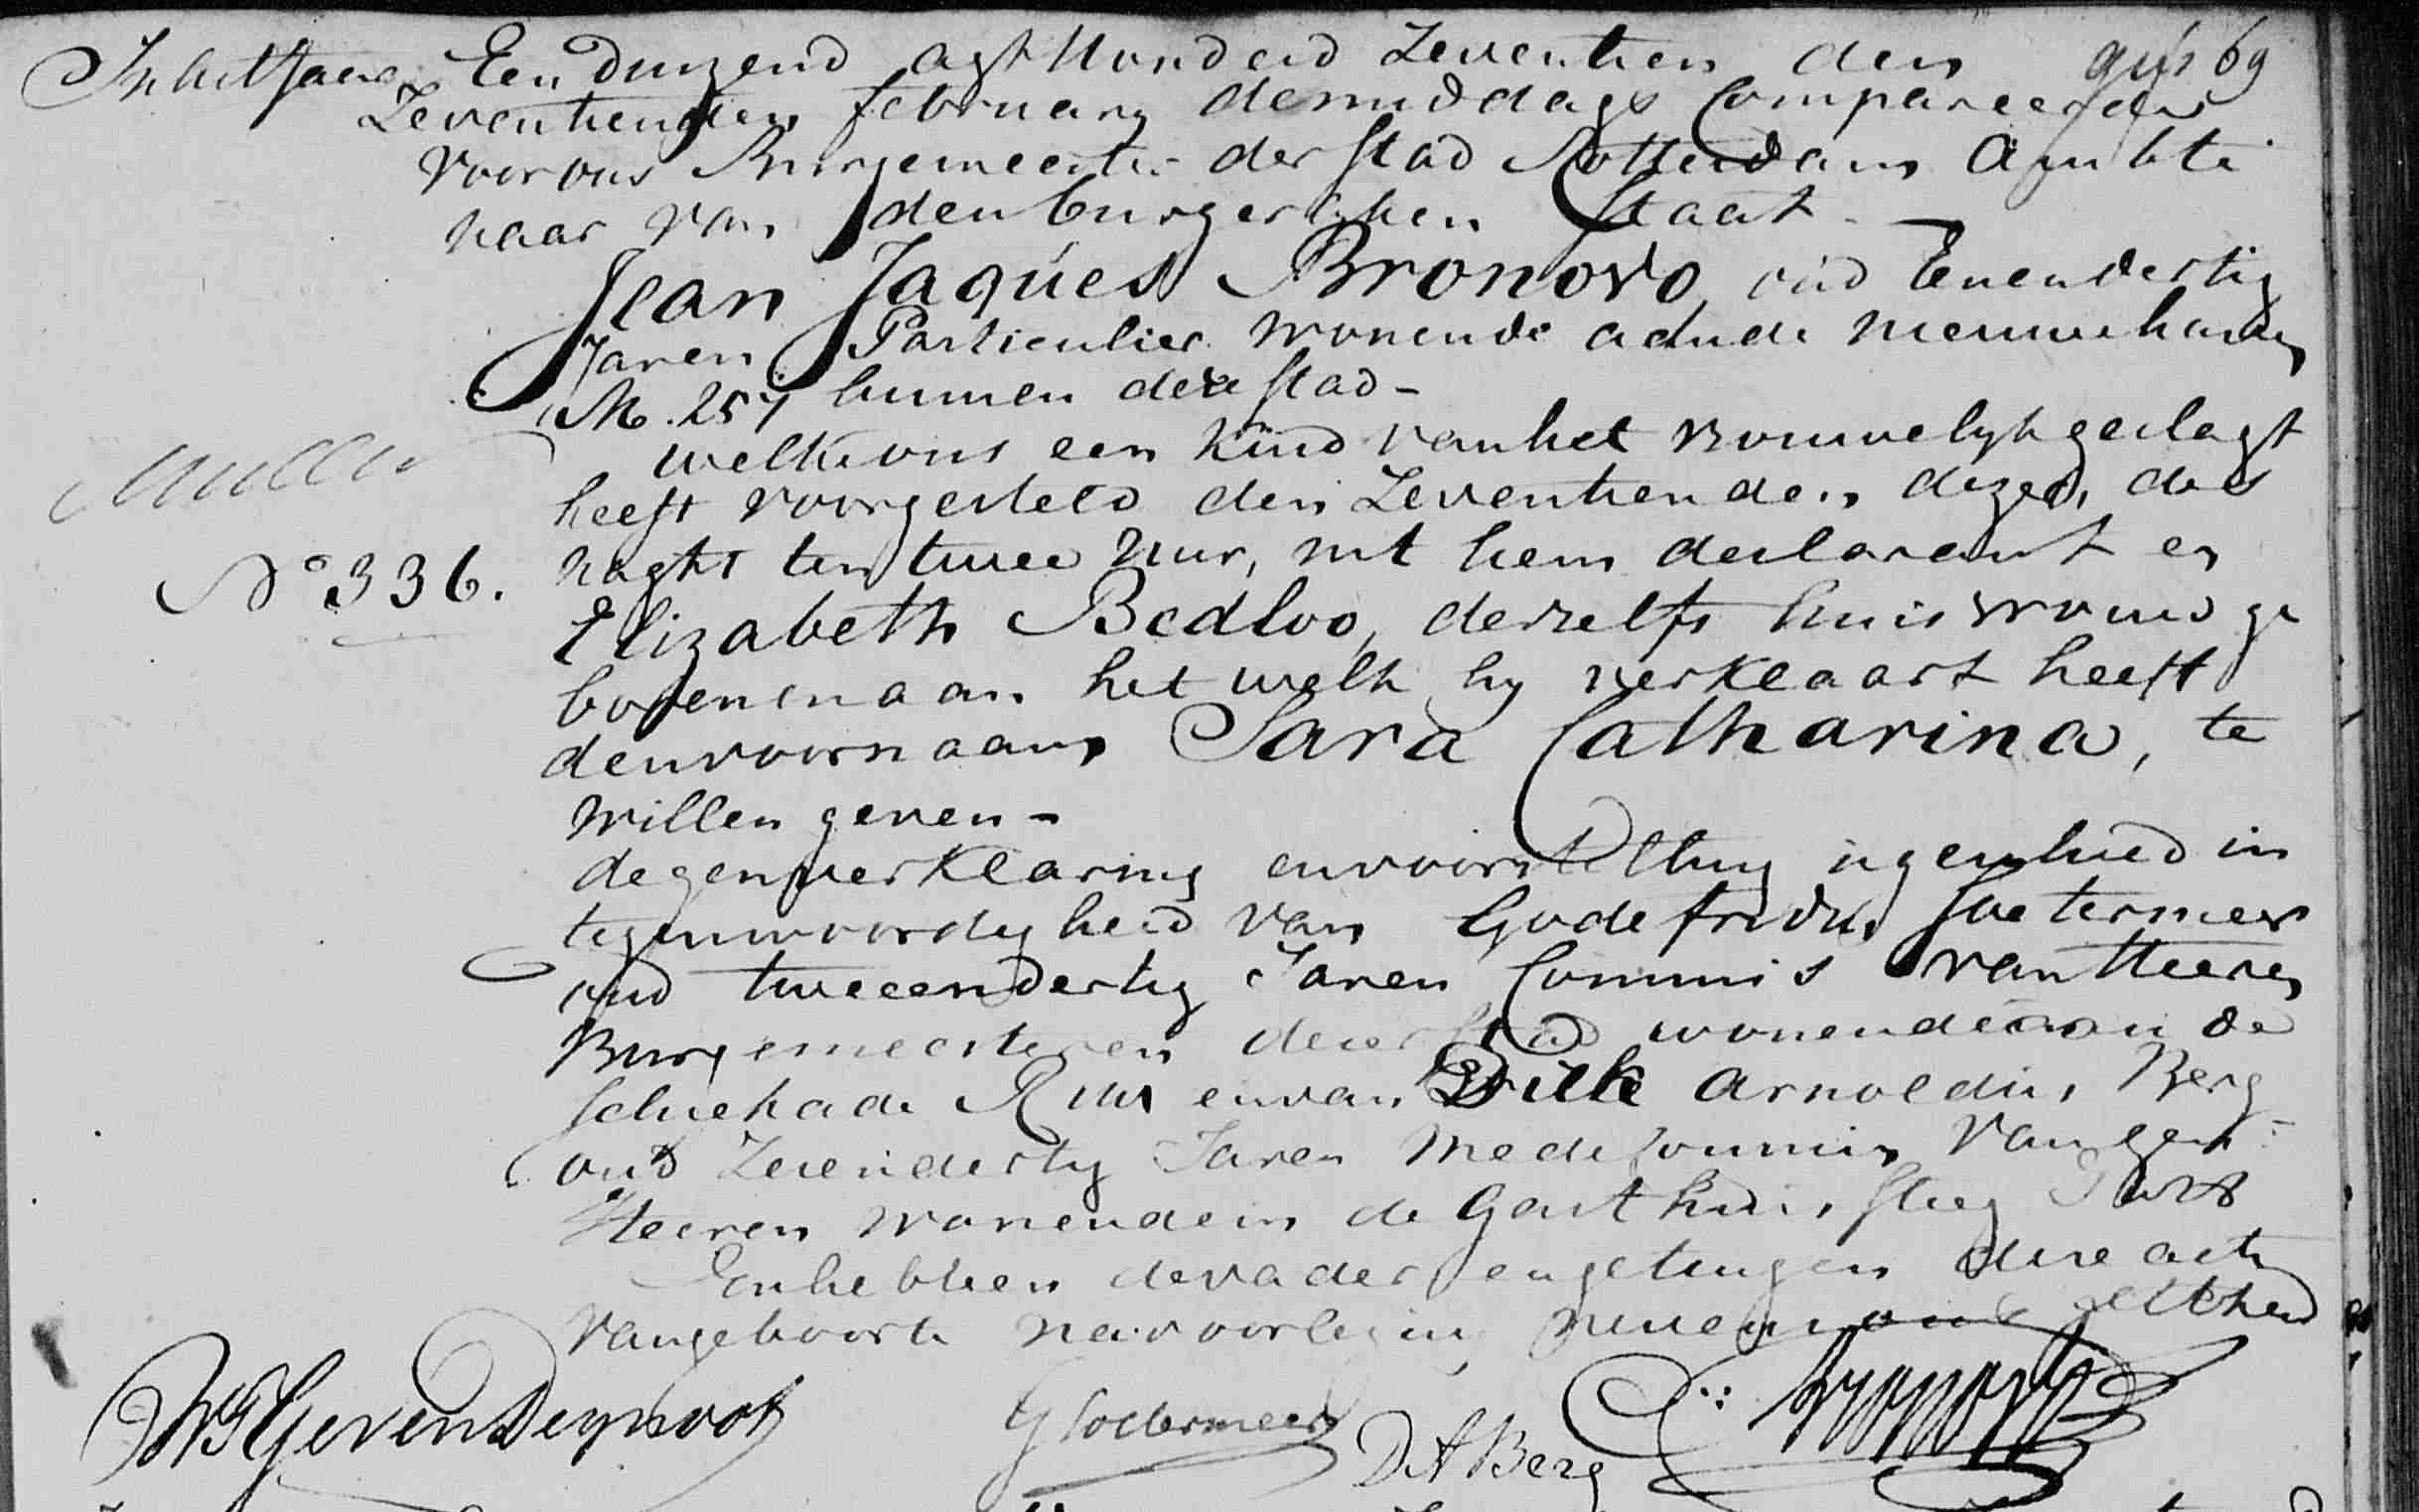 In het Jaar Een Duizend agt Honderd Zeventien den
Zeventienden february demiddags Compareerde
voor ons Burgemeester der stad Rotterdam Ambte
naar van den burgerlyken Staat -
Jean Jaques Bronovo, oud Eenendertig
Jaren Particulier wonende aande nieuwehaven
M. 257 binnen deze stad -
welke ons een kind van het vrouwelyk geslagt
heeft voorgesteld den Zeventienden dezer, des
nagts ten twee uur, uit hem declarant en
Nº 336.
Elizabeth Bedloo, deszelfs huisvrouw ge
boren en aan het welk hy verklaart heeft
den voornaam Sara Catharina, te
willen geven -
degen verklaring en voorstelling is geschied in
tegenwoordigheid van Godefridus Soetermeer
oud tweeendertig Jaren Commis van Heeren
Burgemeesteren dezer stad wonende aan de
Schiekade en van Dirk Arnoldus Berg
oud Zevendertig Jaren mede Commis van gem:
Heeren wonende in de Gasthuis steeg
En hebben de vader en getuigen deze acte
van geboorte na voorlezing nevens ons getekend
Gevers Deynoot
G Soetermeer
D A Berg
Bronovo